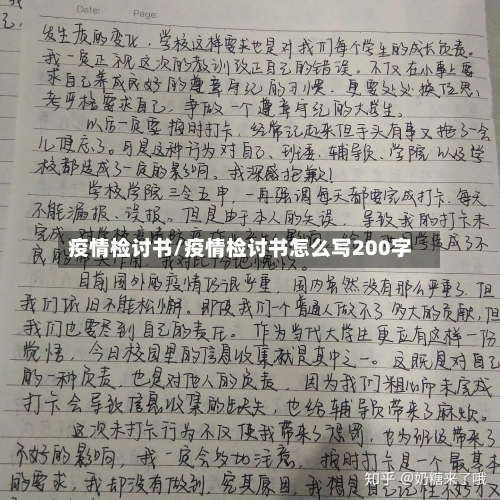 Date:    Page:
发生质的变化，学校这样要求也是对我们每个学生的成长负责。
我一定正视这次的教训改正自己的错误。不仅在小事上要
求自己养成良好的遵章守纪的习惯，更要处处换位思
考严格要求自己，争做一个遵章守纪的大学生。
以后一定要按时打卡，经常记起来但手头有事又拖了一会
儿便忘了。可是这种行为对自己、班委、辅导员、学院以及学
校都造成了一定的影响。我深感抱歉！
学校学院三令五申，一再强调每天都要完成打卡，每天
不能漏报、误报。但是由于本人的失误，导致我的打卡未
完成
疫情检讨书/疫情检讨书怎么写200字
目前国外的疫情仍很严重，国内虽然没有那么严重了，但
我们依旧不能松懈。即使我们一个普通人做不了多大的贡献，但
我们也要尽到自己的责任。作为当代大学生更应有这样一份
觉悟，今日校园里的信息收集就是其中之一。这既是对自己
的一种负责，也是对他人的负责，因为我们粗心而未完成
打卡会导致信息收集的缺失，也给辅导员带来了麻烦。
这次未打卡行为不仅使我带来了惩罚，也为班级带来了
不好的影响，我一定会多加注意，按时打卡是一个最基本
的要求，我却没有做到，究其原因，我想是
知乎 @奶糖来了哦